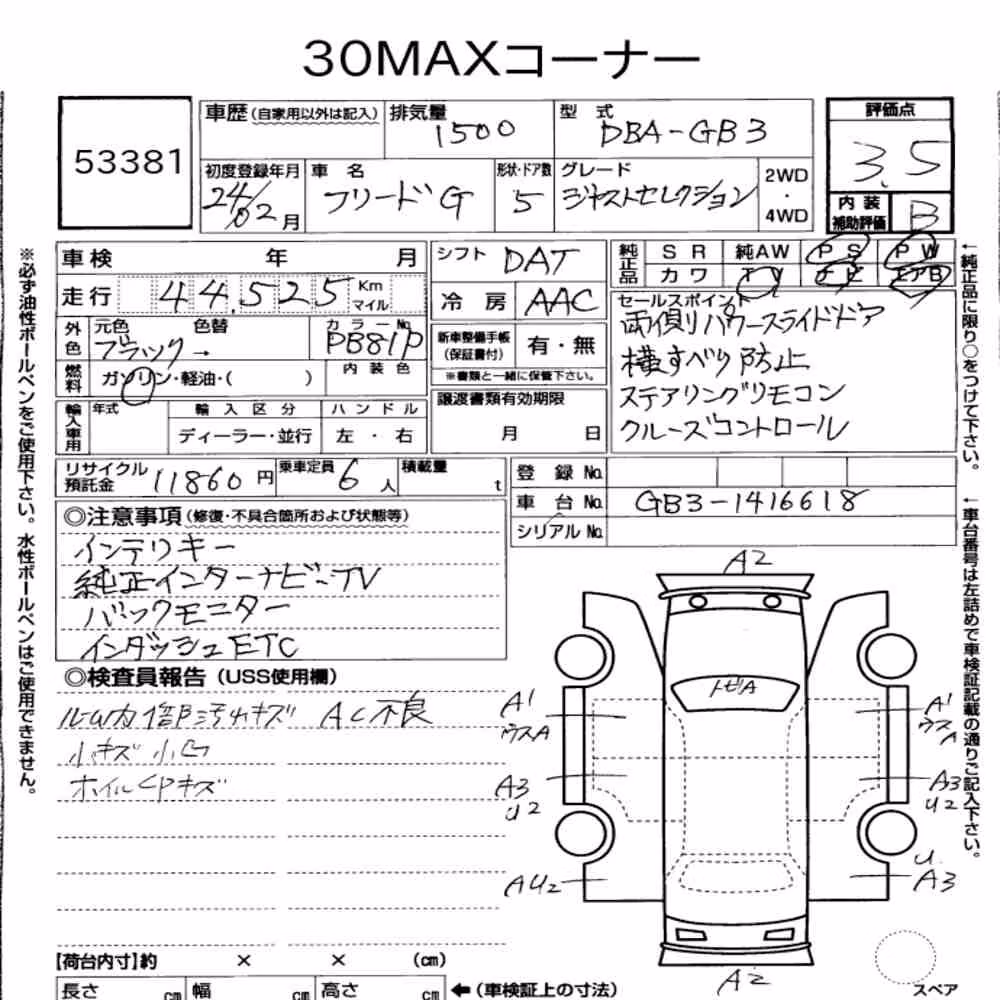 30MAXコーナー
53381
車歴 (自家用以外は記入) 排気量 1500 型式 DBA-GB3
初度登録年月 24/02月 車名 フリードG 形状・ドア数 5 グレード ジャストセレクション 2WD・4WD
評価点 3.5
内装補助評価 B
車検 年 月
走行 44,525 Km マイル
シフト DAT
冷房 AAC
純正品 SR 純AW PS PW
カワ TV ナビ エアB
外色 元色 ブラック → 色替 カラーNo. PB81P
燃料 ガソリン・軽油・( ) 内装色
新車整備手帳 (保証書付) 有・無
※書類と一緒に保管下さい。
セールスポイント
両側パワースライドドア
横すべり防止
ステアリングリモコン
クルーズコントロール
輸入車用 年式 輸入区分 ハンドル
ディーラー・並行 左・右
譲渡書類有効期限
月 日
リサイクル預託金 11860円 乗車定員 6人 積載量 t
登録No.
車台No. GB3-1416618
シリアルNo.
◎注意事項 (修復・不具合箇所および状態等)
インテリキー
純正インターナビ-TV
バックモニター
インダッシュETC
◎検査員報告 (USS使用欄)
ルーム内 汚れキズ AC不良
小キズ 小凹
ホイルCPキズ
A2
トビA
A1
ウスA
A1
ウスA
A3
U2
A3
U2
AU2
U
A3
A2
スペア
【荷台内寸】約 × × (cm)
長さ cm 幅 cm 高さ cm ←(車検証上の寸法)
※必ず油性ボールペンをご使用下さい。水性ボールペンはご使用できません。
←純正品に限り○をつけて下さい。
←車台番号は左詰めで車検証記載の通りご記入下さい。